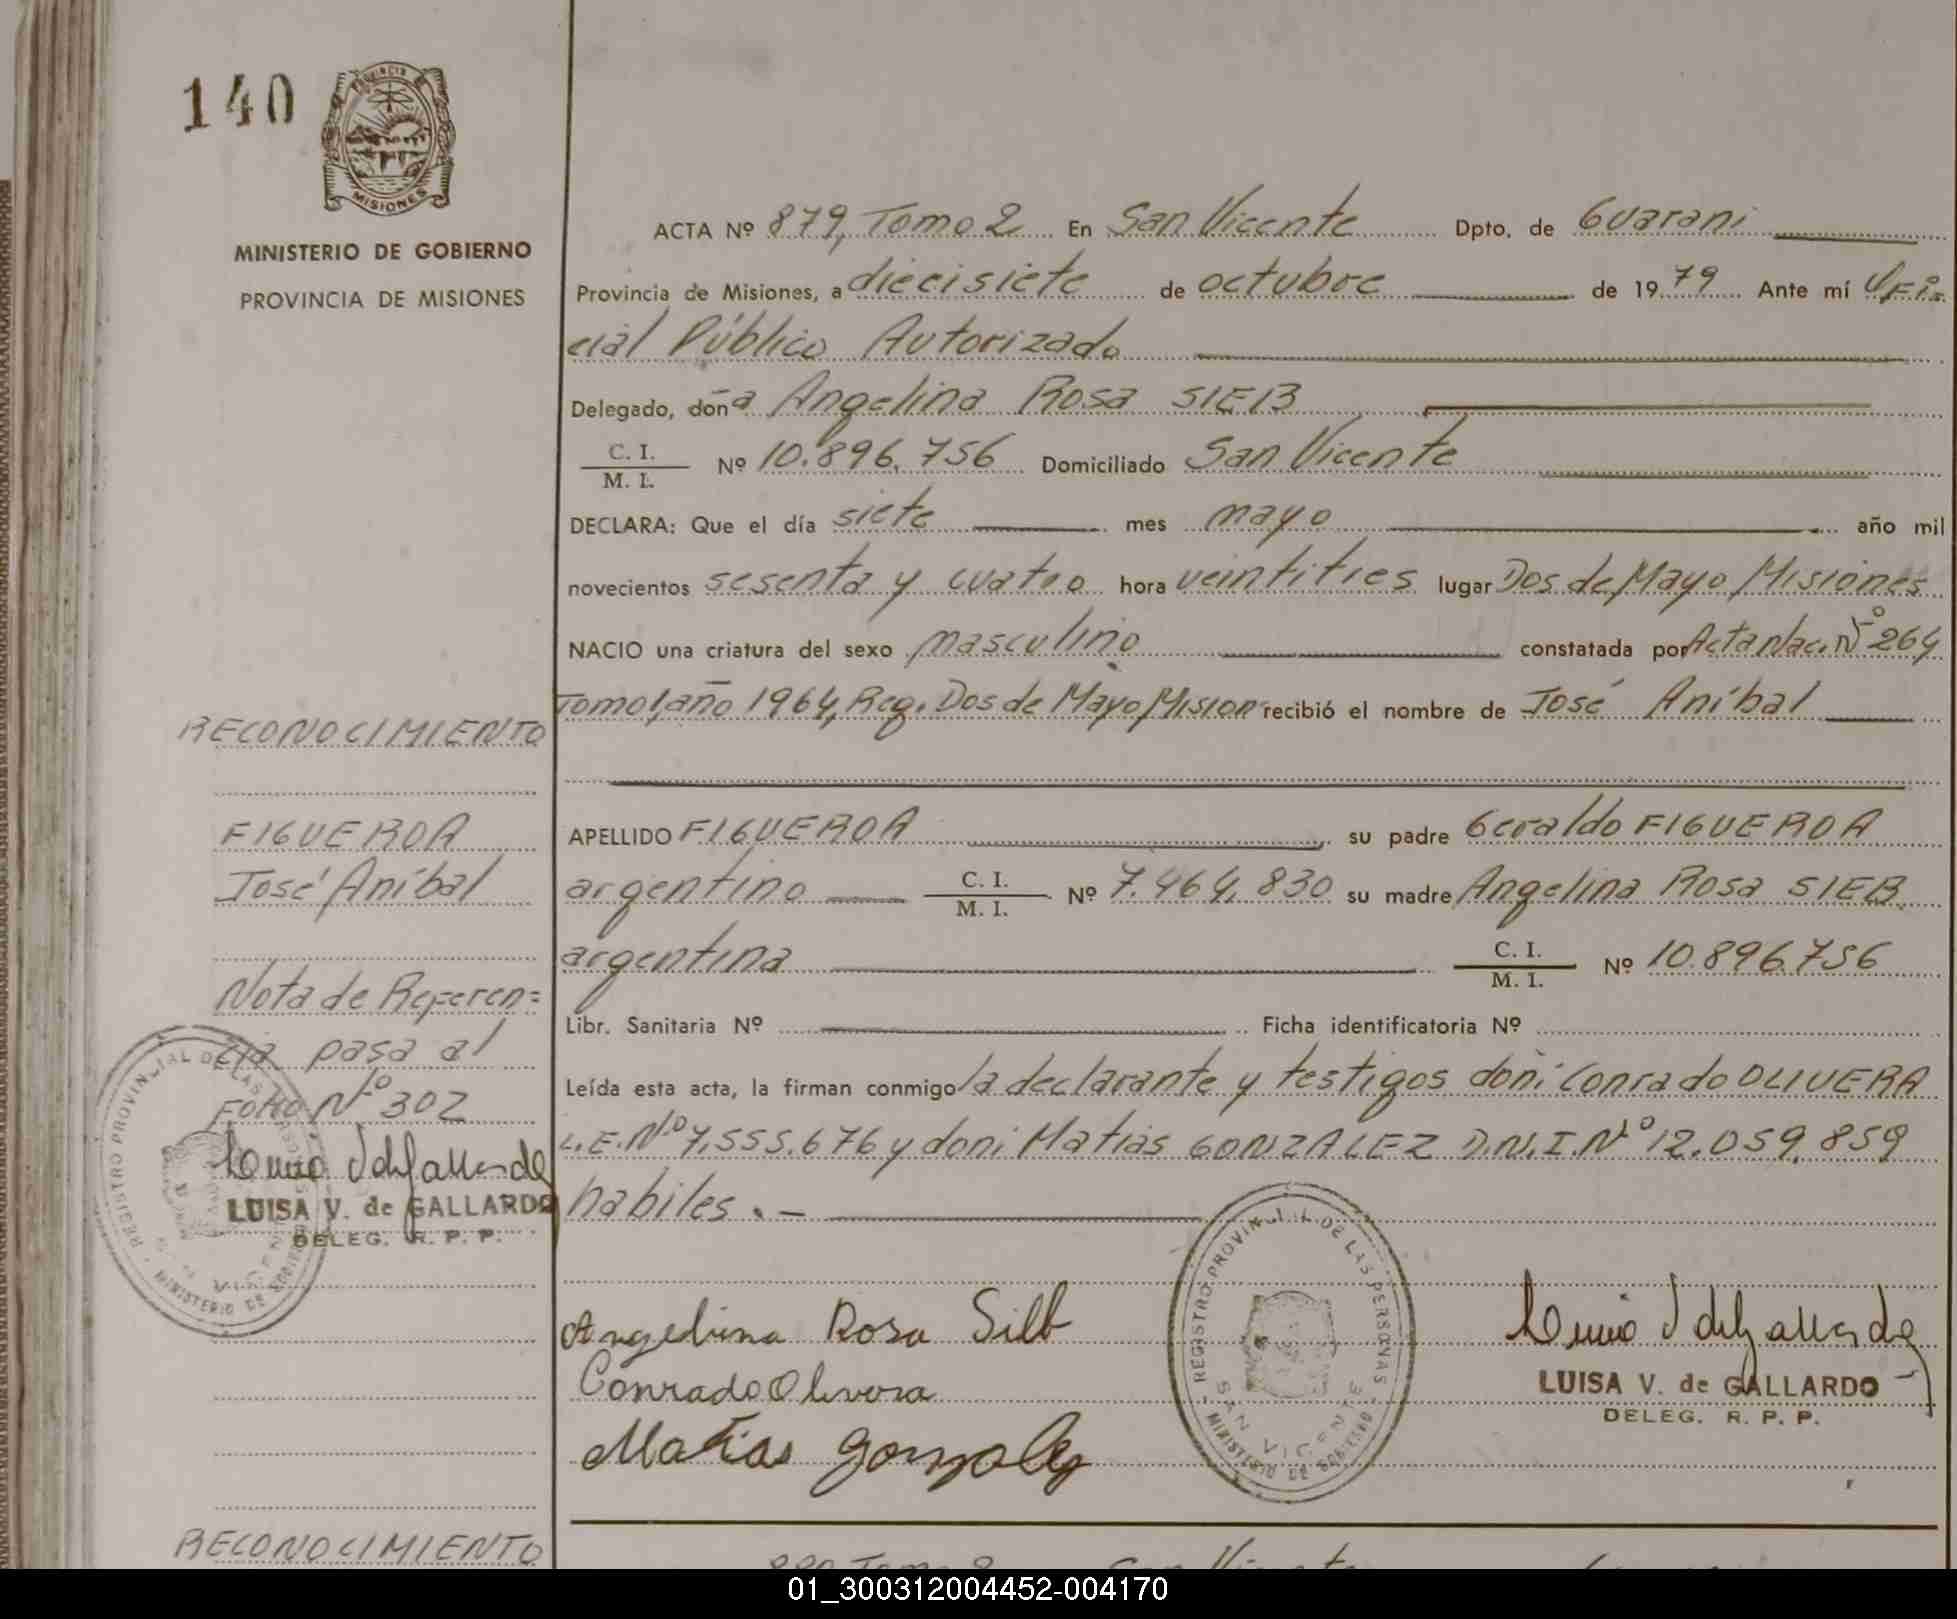 140
PROVINCIA DE
MISIONES
MINISTERIO DE GOBIERNO
PROVINCIA DE MISIONES
RECONOCIMIENTO
FIGUEROA
José Aníbal
Nota de Referen=
cia pasa al
FOLIO Nº 302
LUISA V. de GALLARDO
DELEG. R. P. P.
REGISTRO PROVINCIAL DE LAS
MINISTERIO DE GOBIERNO
ACTA Nº 879, Tomo 2 En San Vicente Dpto. de Guarani
Provincia de Misiones, a diecisiete de octubre de 19 79 Ante mí Ofi=
cial Público Autorizado
Delegado, doña Angelina Rosa SIEB
C. I.
M. I. Nº 10.896.756 Domiciliado San Vicente
DECLARA: Que el día siete mes mayo año mil
novecientos sesenta y cuatro hora veintitres lugar Dos de Mayo Misiones
NACIO una criatura del sexo masculino constatada por Acta Nac. Nº 264
Tomo 1, año 1964, Reg. Dos de Mayo Mision recibió el nombre de José Aníbal
APELLIDO FIGUEROA su padre Geraldo FIGUEROA
argentino C. I. M. I. Nº 7.464.830 su madre Angelina Rosa SIEB
argentina C. I. M. I. Nº 10.896.756
Libr. Sanitaria Nº Ficha identificatoria Nº
Leída esta acta, la firman conmigo la declarante y testigos don: Conrado OLIVERA
L.E. Nº 7.555.676 y don: Matias GONZALEZ D.N.I. Nº 12.059.859
habiles.-
Angelina Rosa Silb
Conrado Olivera
Matias Gonzalez
REGISTRO PROVINCIAL DE LAS PERSONAS
SAN VICENTE
MINISTERIO DE GOBIERNO
LUISA V. de GALLARDO
DELEG. R. P. P.
RECONOCIMIENTO
880 Tomo 2 San Vicente
01_300312004452-004170